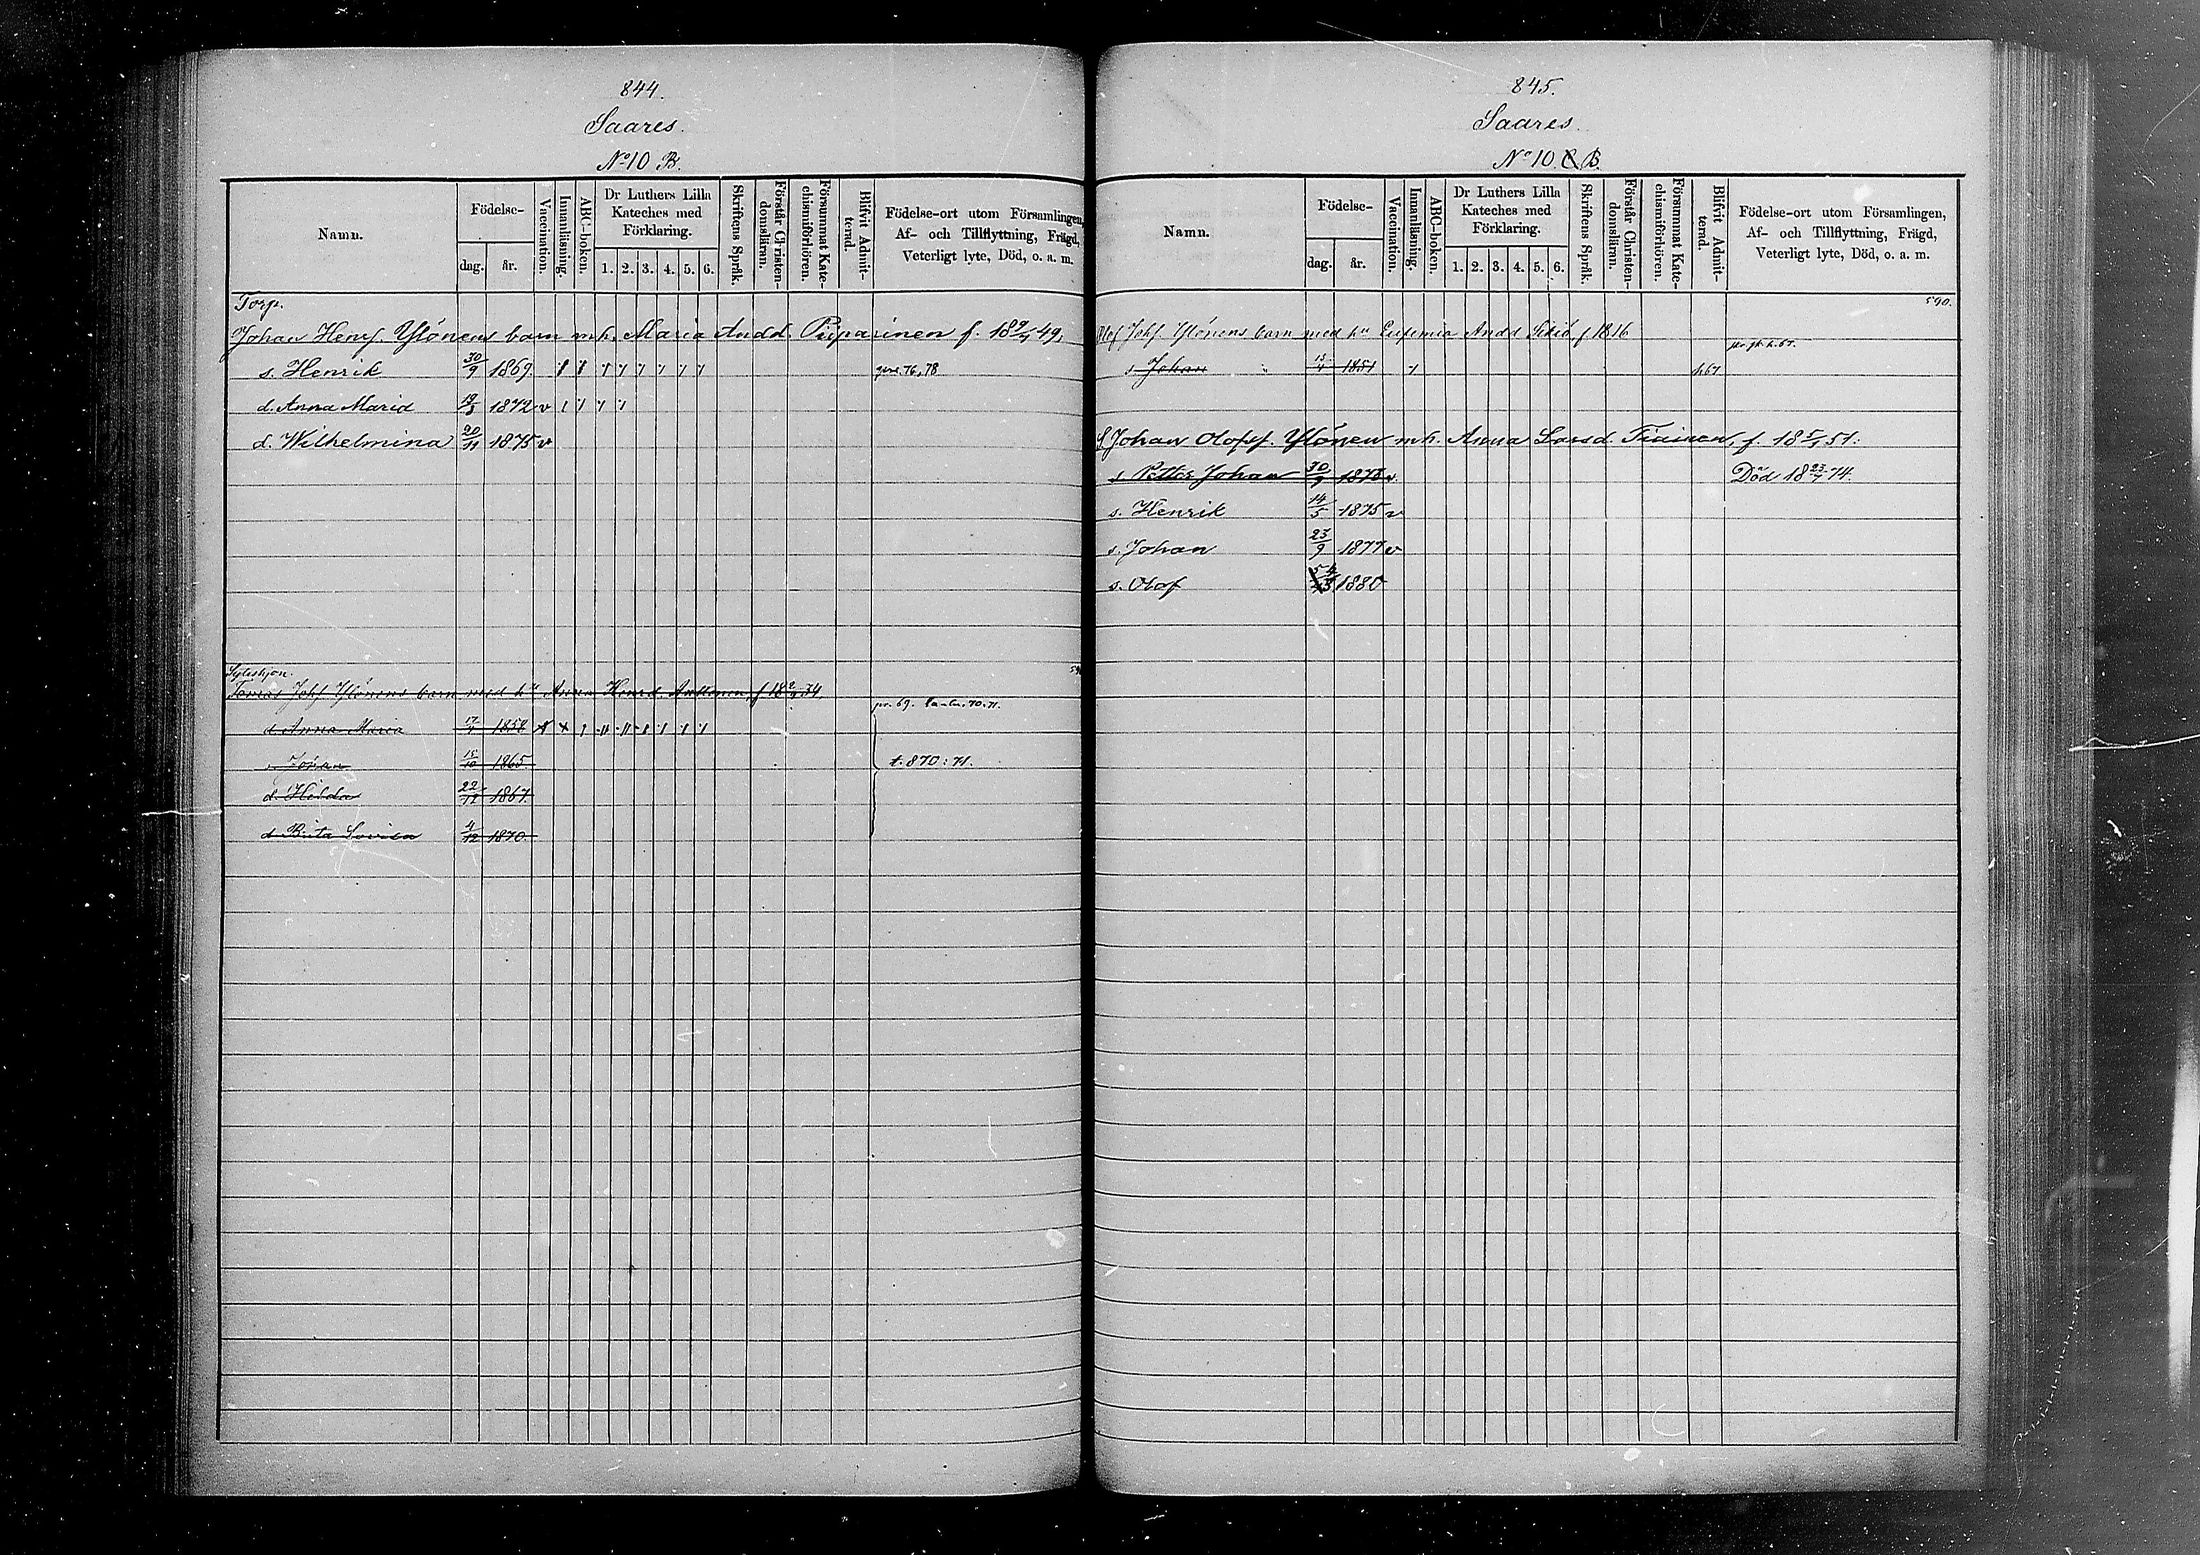 844.
Saares.
No 10 B.
Namn. Födelse- dag. år. Vaccination. Innanläsning. ABC-boken. Dr Luthers Lilla Kateches med Förklaring. 1. 2. 3. 4. 5. 6. Skriftens Språk. Förstår Christendomsläran. Försummat Katechismiförhören. Blifvit Admitterad. Födelse-ort utom Församlingen, Af- och Tillflyttning, Frägd, Veterligt lyte, Död, o. a. m.
Torp.
Johan Henrs. Ylönens barn m. h. Maria Andd. Piiparinen f. 18 9/4 49,
s. Henrik 30/9 1869. 76, 78
d. Anna Maria 19/3 1872 v
d. Wilhelmina 20/11 1875 v
Tomas Johs Ylönens barn med hu Anna Henrd. f 18 34
pr. 69. 70. 71.
d. Anna Maria 17/4 1858
s. Johan 15/10 1865 t. 870: 71.
d. Hedda 22/12 1867
d. Brita Lovisa 4/12 1870.
845.
Saares.
No 10 C B.
Namn. Födelse- dag. år. Vaccination. Innanläsning. ABC-boken. Dr Luthers Lilla Kateches med Förklaring. 1. 2. 3. 4. 5. 6. Skriftens Språk. Förstår Christendomsläran. Försummat Katechismiförhören. Blifvit Admitterad. Födelse-ort utom Församlingen, Af- och Tillflyttning, Frägd, Veterligt lyte, Död, o. a. m.
590.
Olof Johs. Ylönens barn med hu Eufemia Andd f 1816
s Johan 1851 67
Johan Olofss. Ylönen m h. Anna Larsd. Tiainen, f. 18 5/4 51.
s Petter Johan 30/9 1873 v. Död 18 23/7 74.
s. Henrik 14/5 1875 v
s. Johan 23/9 1877 v
s. Olof 1880